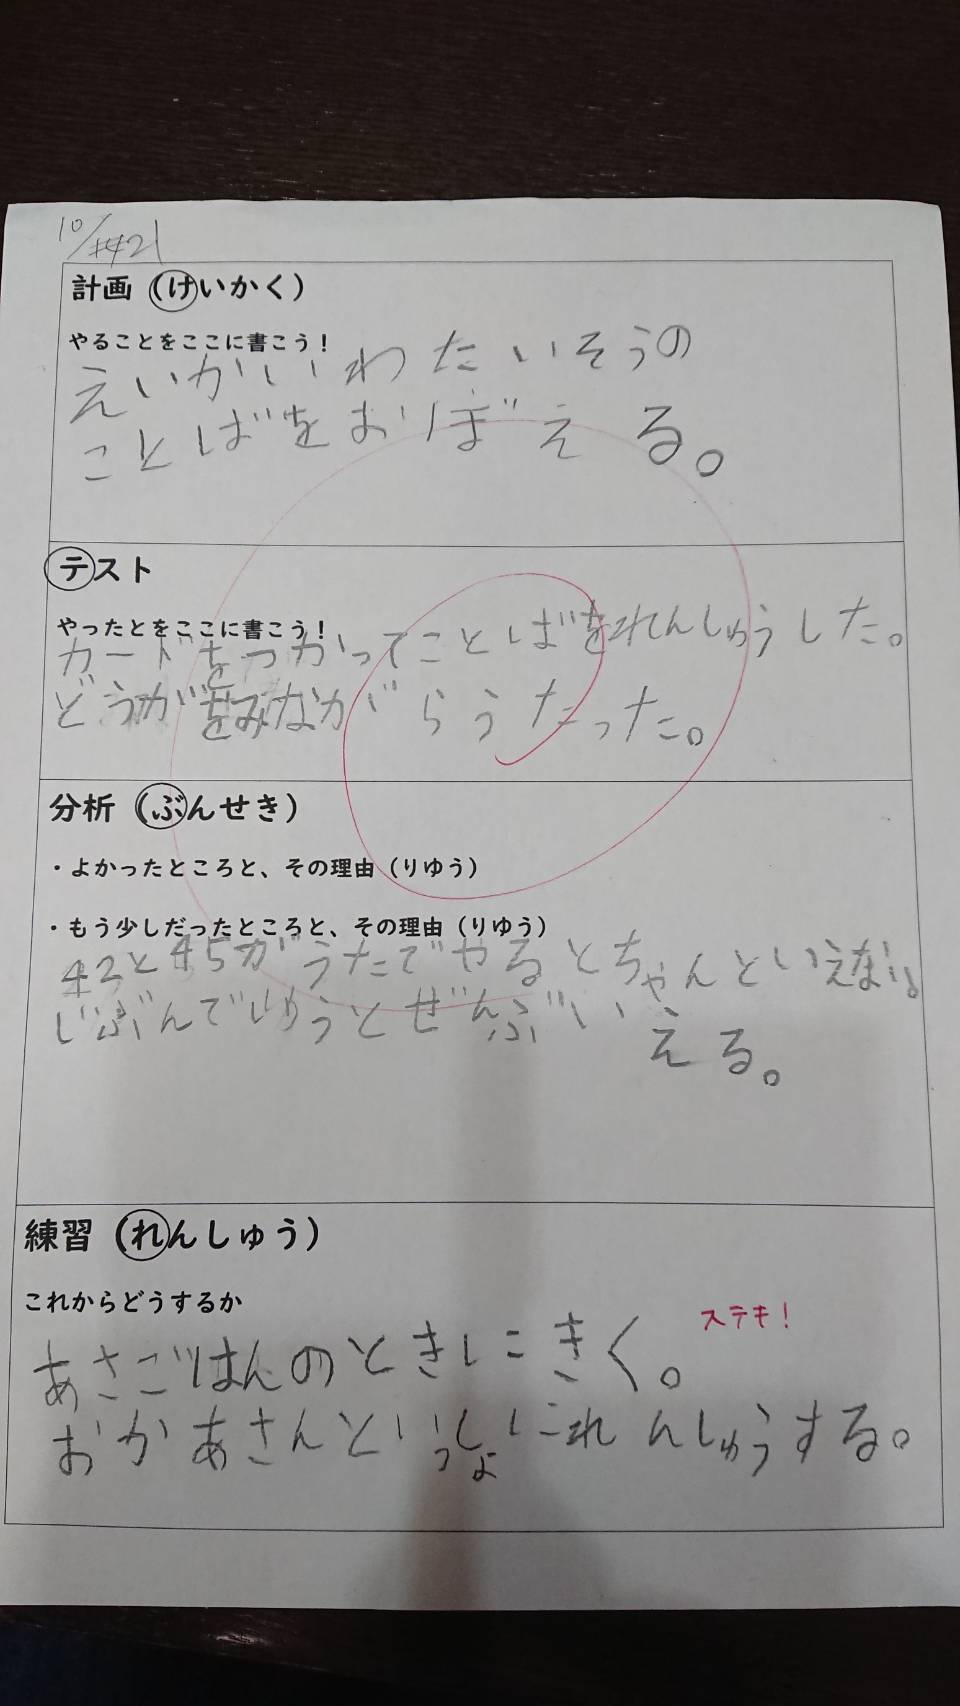 10/21
計画（けいかく）
やることをここに書こう！
えいかいわたいそうの
ことばをおぼえる。
テスト
やったとをここに書こう！
カードをつかってことばをれんしゅうした。
どうがをみながらうたった。
分析（ぶんせき）
・よかったところと、その理由（りゆう）
・もう少しだったところと、その理由（りゆう）
43と45がうたでやるとちゃんといえない。
じぶんでゆうとぜんぶいえる。
練習（れんしゅう）
これからどうするか
ステキ！
あさごはんのときにきく。
おかあさんといっしょにれんしゅうする。